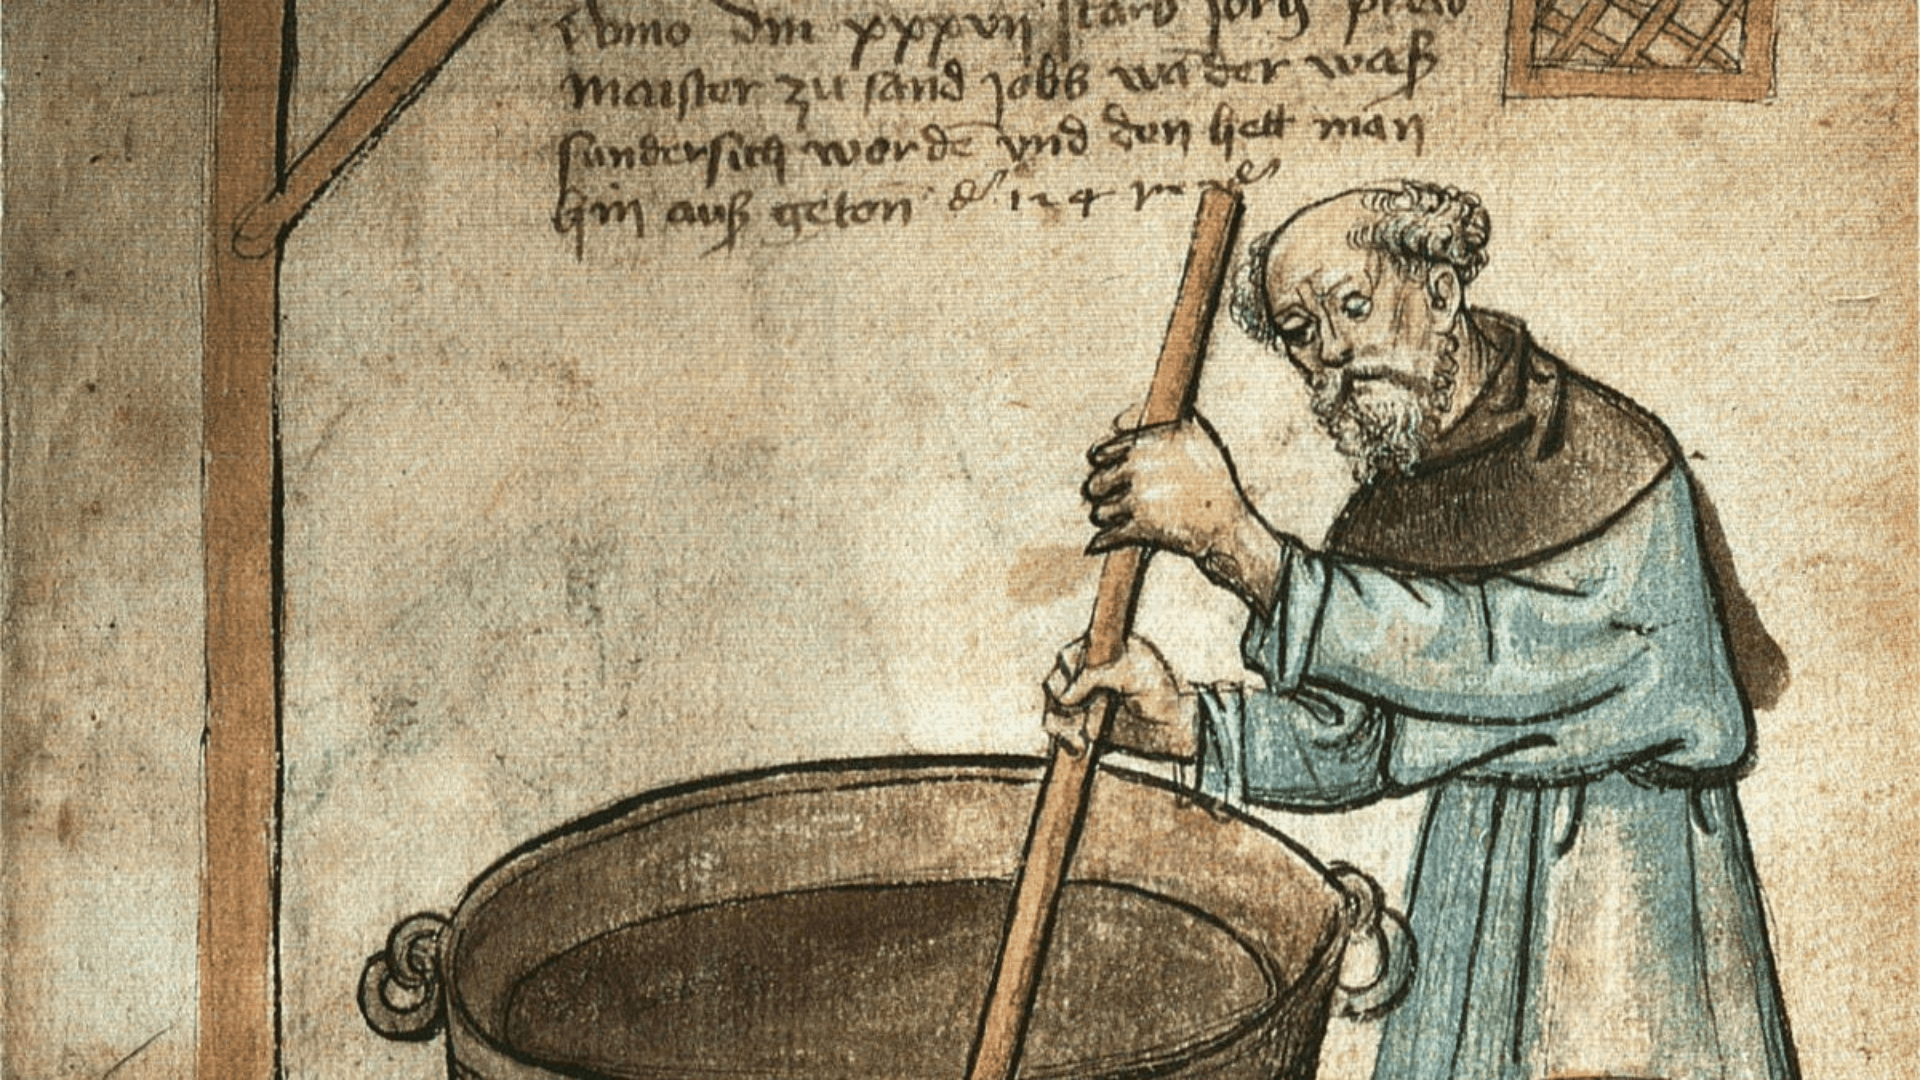 Anno dm xxxvij starb Jorg prew
maister zu sand jobs wa̅ der waß
sundersich worde̅ vnd don hett man
hin auß geton